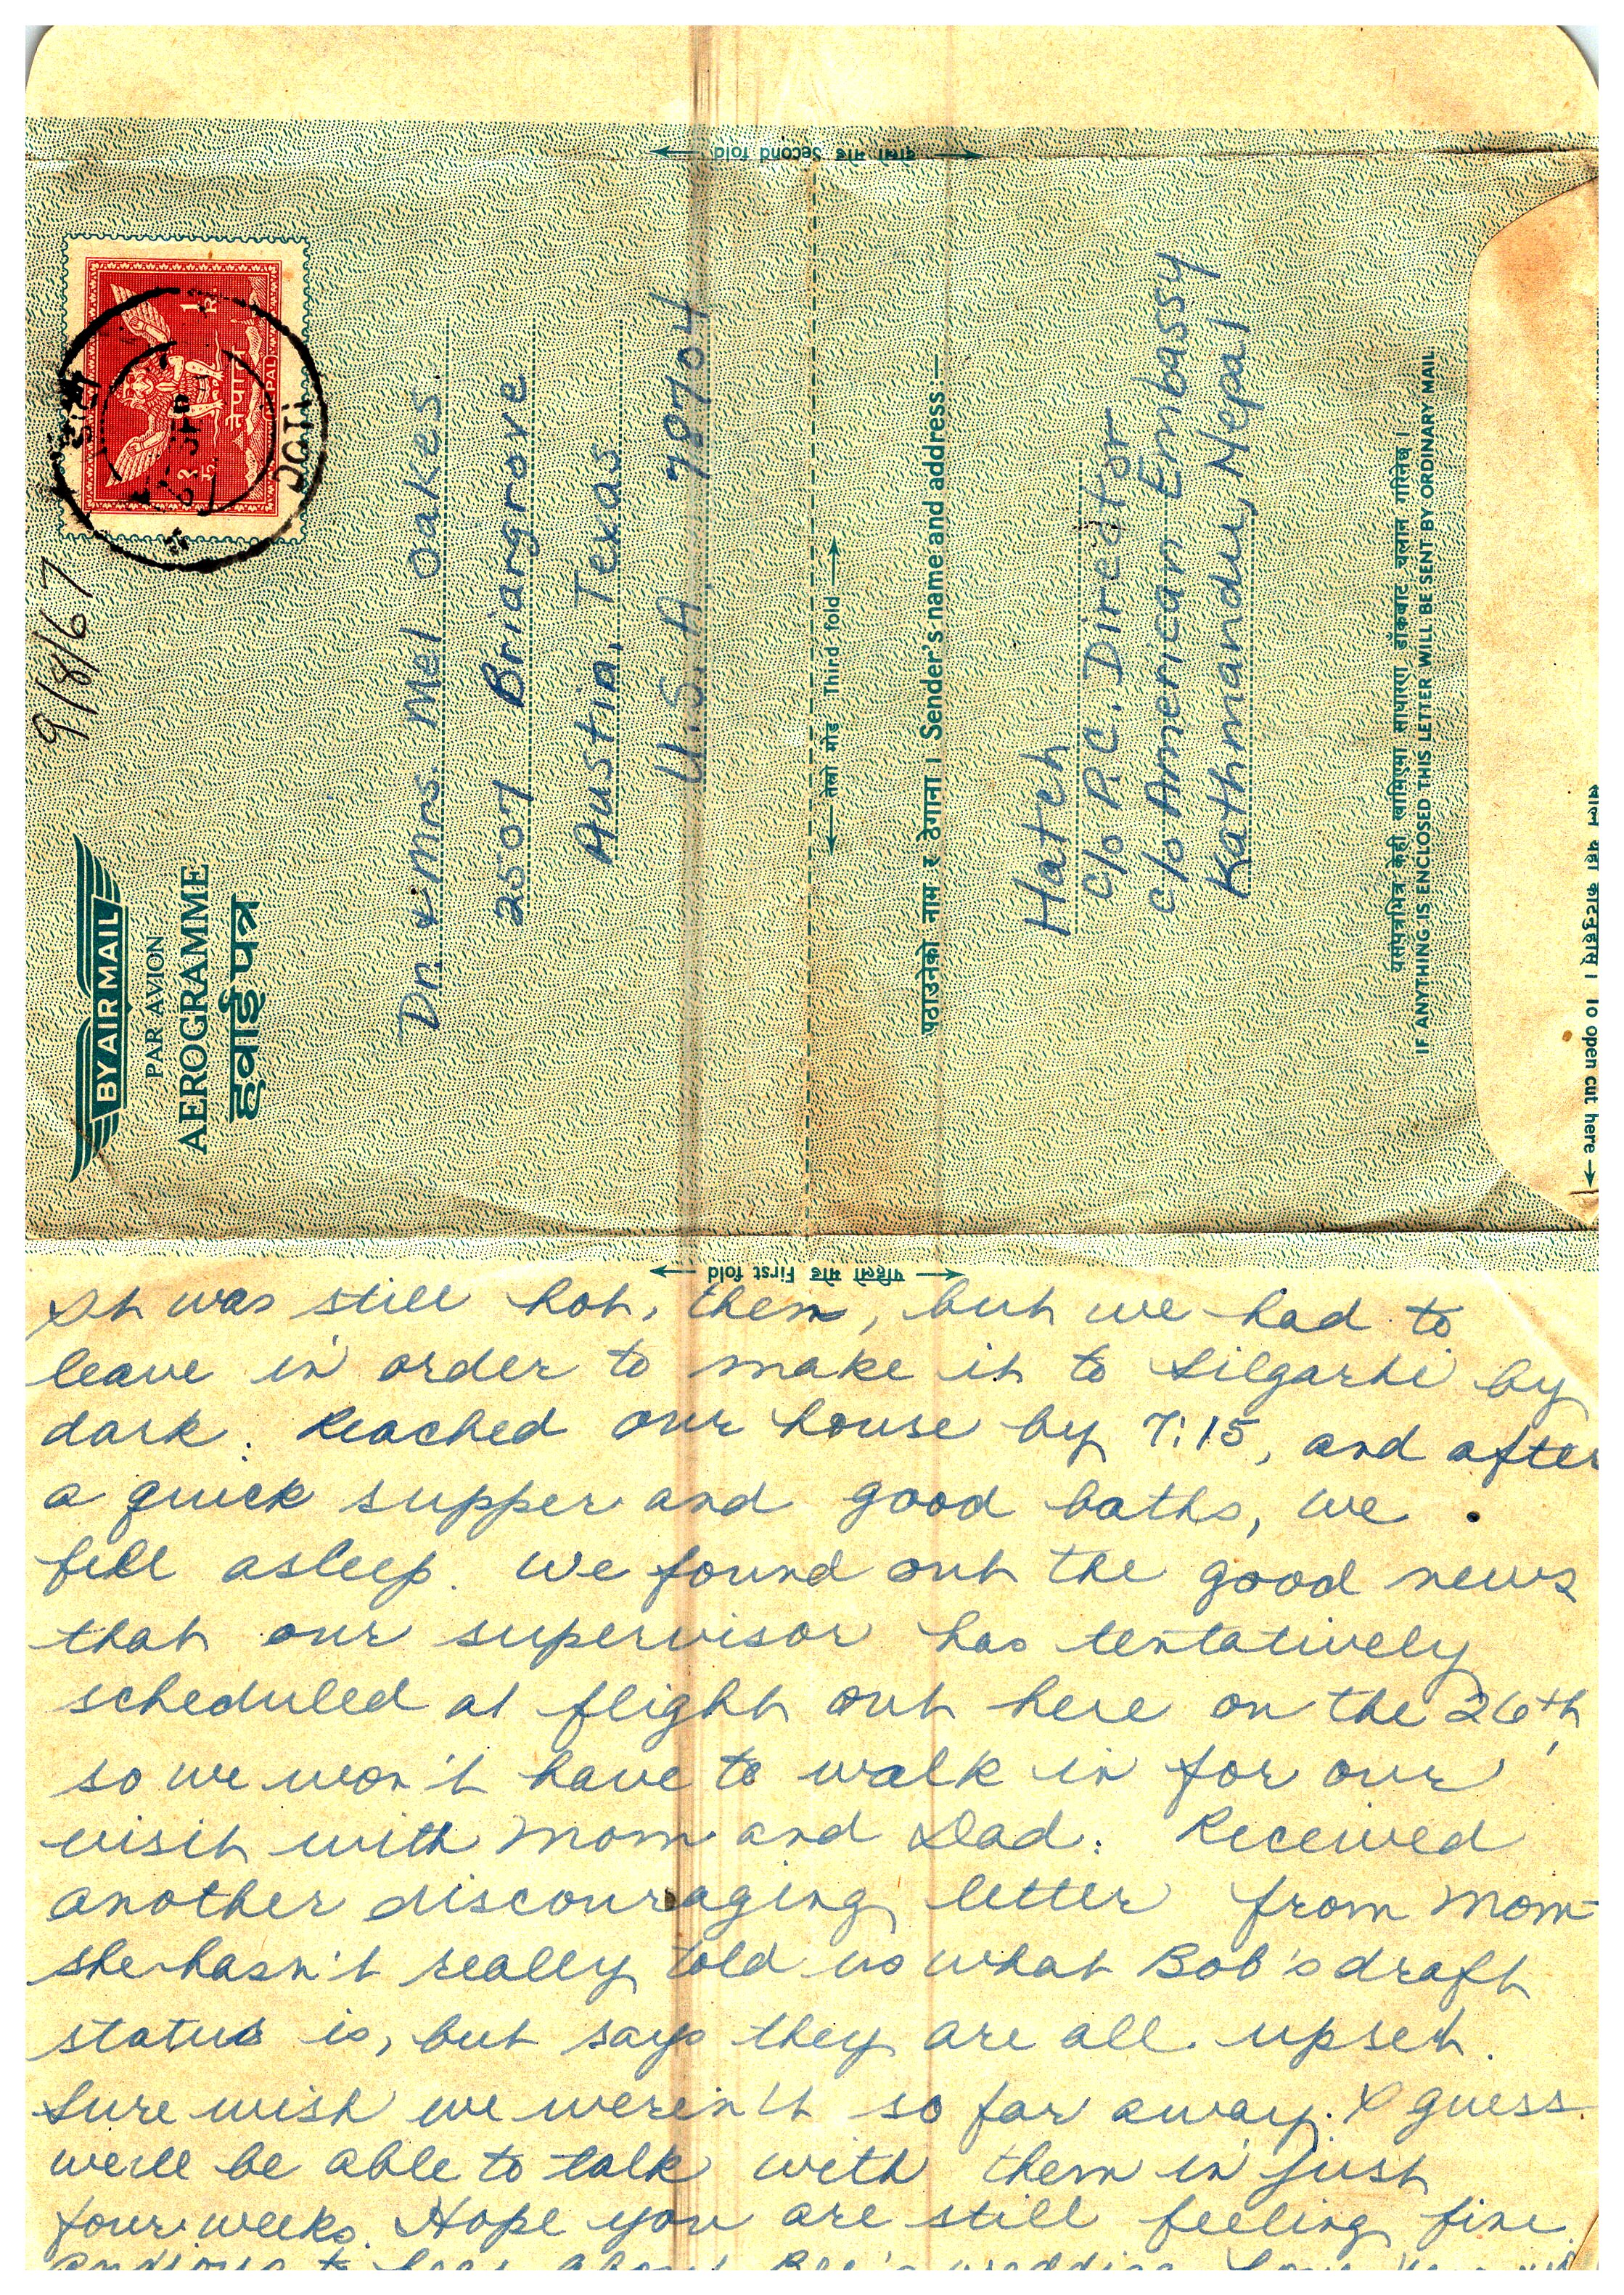 दोस्रो मोड Second fold
9/8/67
BY AIR MAIL
PAR AVION
AEROGRAMME
हवाई पत्र
नेपाल
NEPAL
1 R.
DOTI
Dr. & Mrs. Mel Oakes
2507 Briargrove
Austin, Texas
U.S.A. 78704
तेस्रो मोड Third fold
पठाउनेको नाम र ठेगाना । Sender's name and address:—
Hatch
c/o P.C. Director
c/o American Embassy
Kathmandu, Nepal
यसपत्रभित्र केही खामिएमा साधारण डाँकबाट चलान गरिनेछ ।
IF ANYTHING IS ENCLOSED THIS LETTER WILL BE SENT BY ORDINARY MAIL
To open cut here
पहिलो मोड First fold
It was still hot, then, but we had to
leave in order to make it to Silgarhi by
dark. Reached our house by 7:15, and after
a quick supper and good baths, we
fell asleep. We found out the good news
that our supervisor has tentatively
scheduled a flight out here on the 26th,
so we won't have to walk in for our
visit with Mom and Dad. Received
another discouraging letter from Mom-
she hasn't really told us what Bob's draft
status is, but says they are all upset.
Sure wish we weren't so far away. I guess
we'll be able to talk with them in just
four weeks. Hope you are still feeling fine.